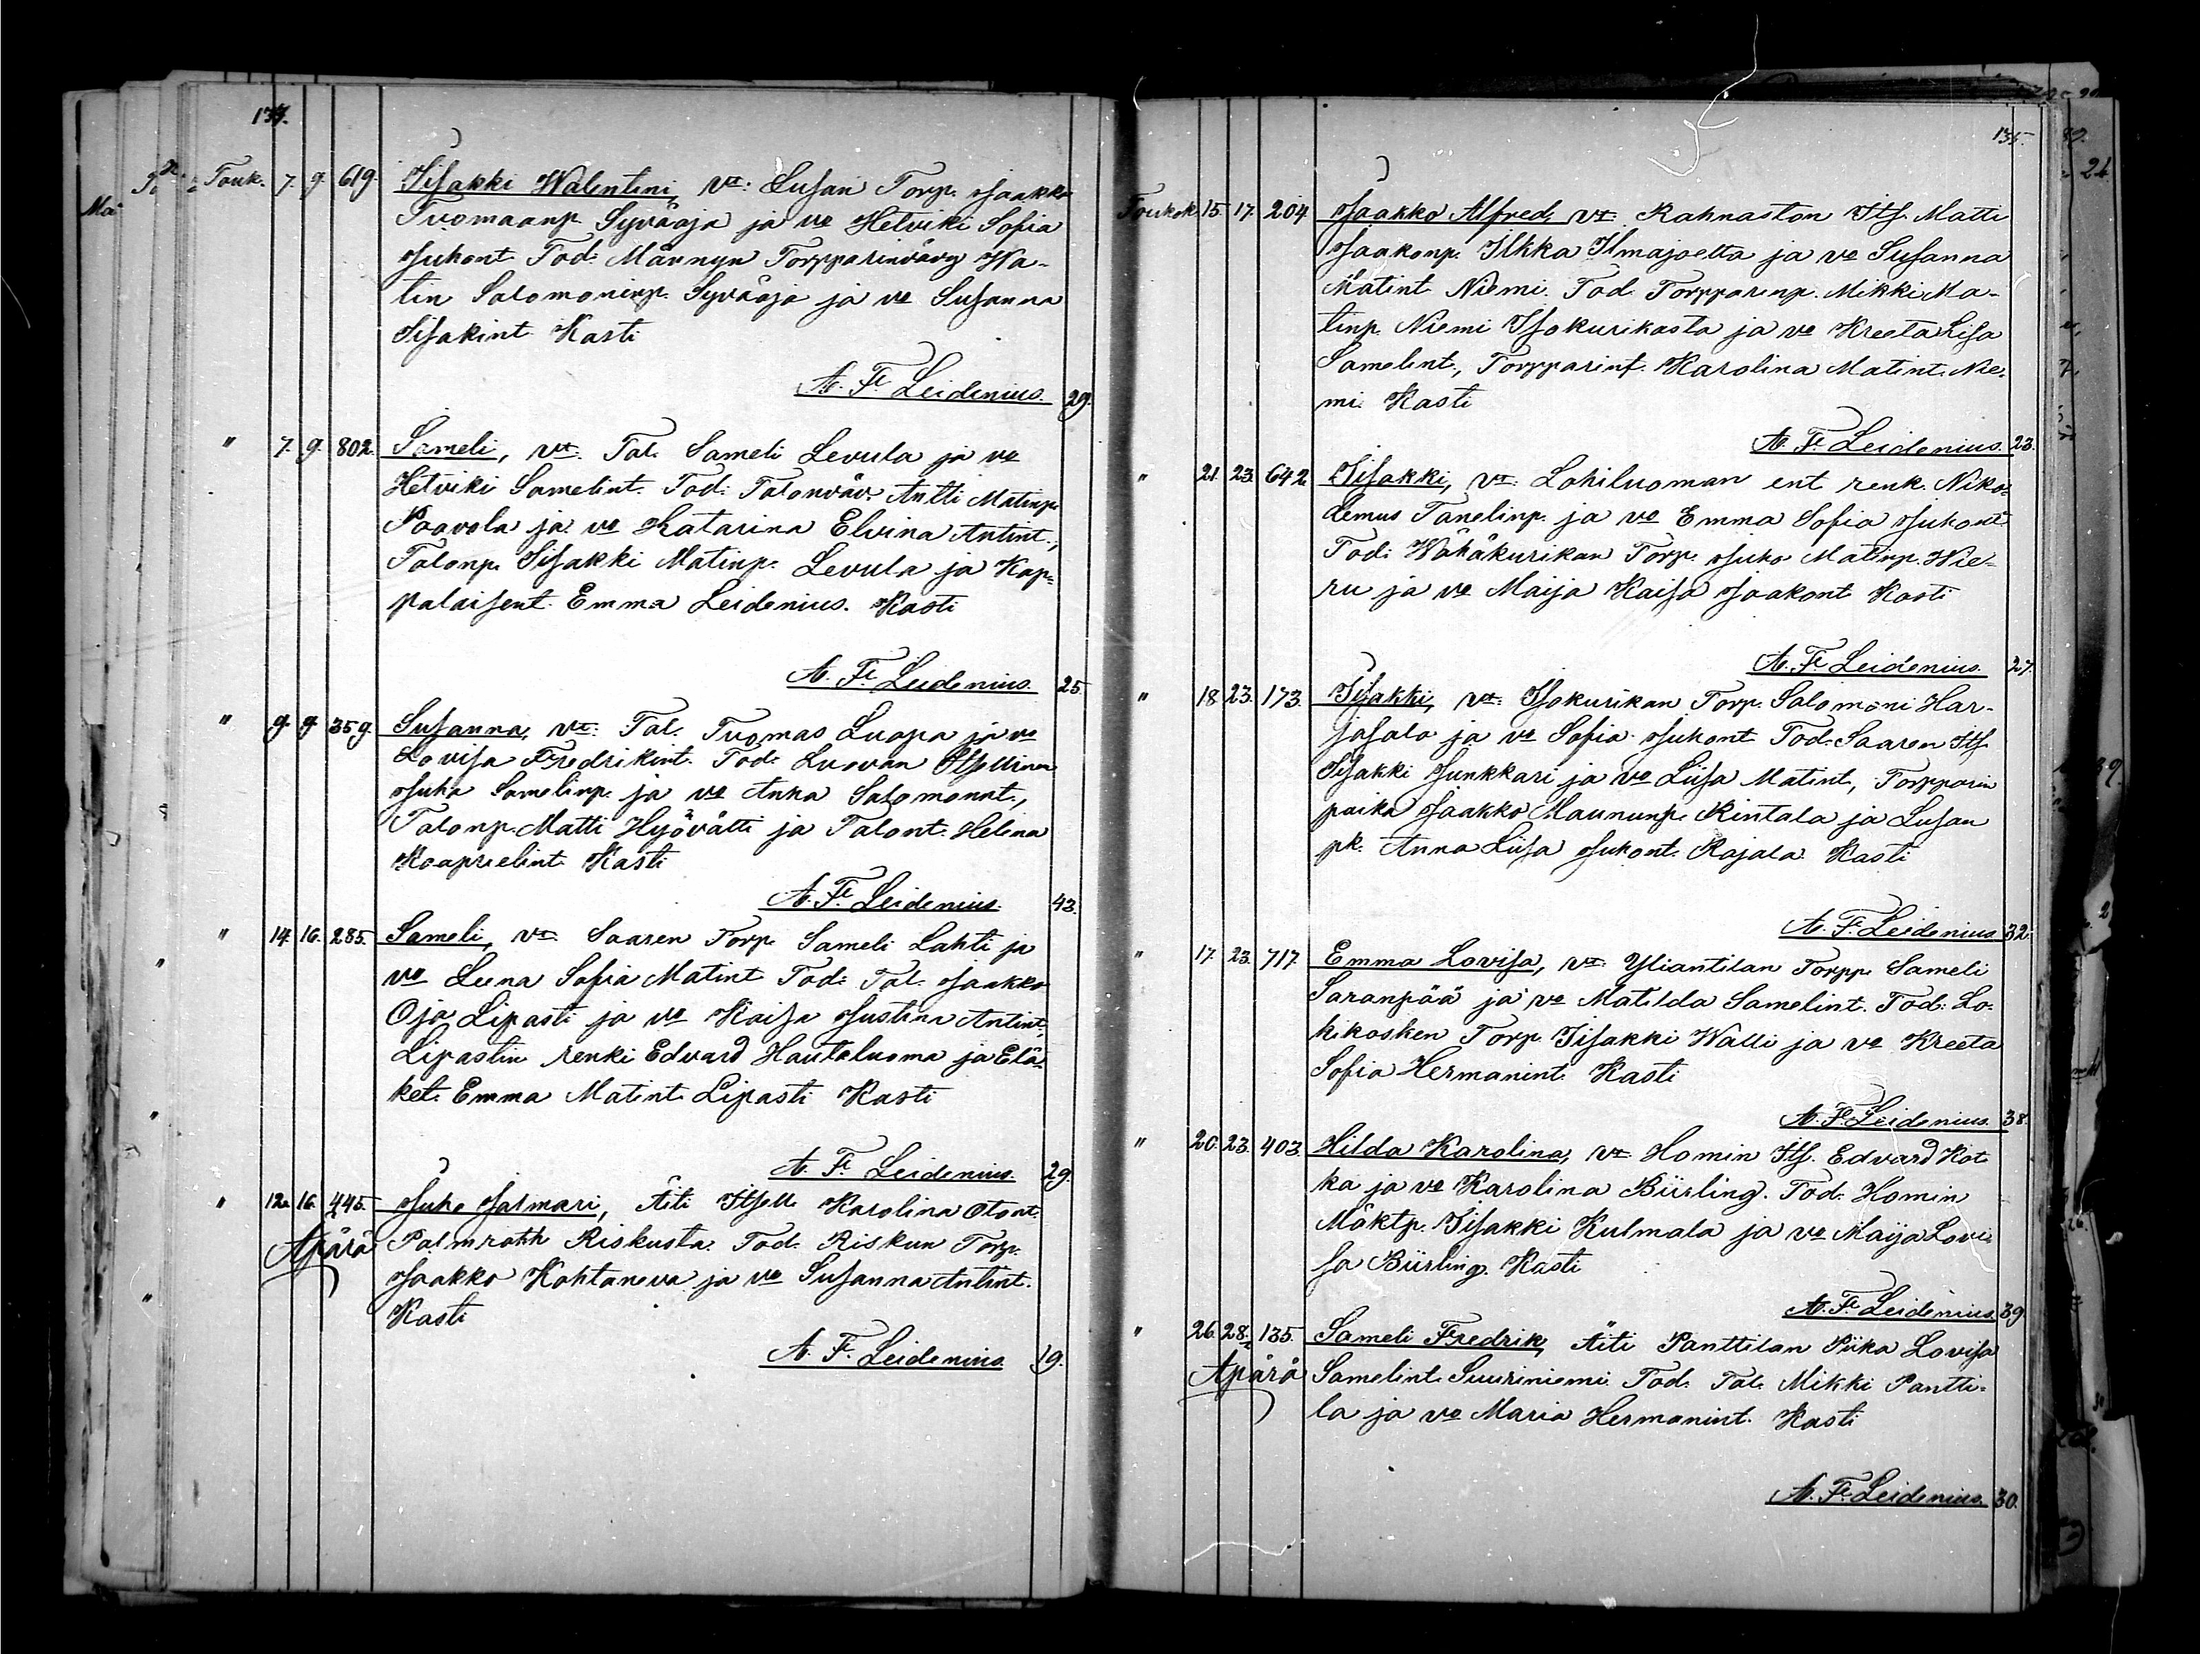 134.
Touk. 7. 9. 619. Iisakki Walentini, vt: Lusan Torp. Jaakko
Tuomaanp. Syväoja ja vo Hetviki Sofia
Juhont. Tod: Männyn Torpparinvävy Wa-
lin Salomoninp. Syväoja ja vo Susanna
Iisakint. Kasti
A. F. Leidenius. 29.
" 7. 9. 802. Sameli, vt. Tal. Sameli Levula ja vo
Hetviki Samelint. Tod: Talonväv. Antti Matinp.
Paavola ja vo Katarina Elvina Antint.,
Talonp. Iisakki Matinp. Levula ja Kap-
palaisent. Emma Leidenius. Kasti
A. F. Leidenius. 25.
" 9. 9. 359. Susanna, vt: Tal. Tuomas Luopa ja vo
Lovisa Fredrikint. Tod: Luovan
Juha Samelinp. ja vo Anna Salomonint.,
Talonp. Matti Hyövälti ja Talont. Helena
Kaaprielint. Kasti
A. F. Leidenius. 43.
" 14. 16. 285. Sameli, vt: Saaren Torp. Sameli Lahti ja
vo Leena Sofia Matint. Tod: Tal. Jaakko
Oja Lipasti ja vo Kaisa Justina Antint.,
Lipastin renki Edvard Hautaluoma ja Elä-
ket. Emma Matint. Lipasti Kasti
A. F. Leidenius. 29.
" 12. 16. 445. Juho Jalmari, Äiti Itsell. Karolina Otont.
Äpärä Palmroth Riskusta. Tod. Riskun Torp.
Jaakko Kohtaneva ja vo Susanna Antint.
Kasti
A. F. Leidenius. 19.
135.
Toukok. 15. 17. 204. Jaakko Alfred, vt: Rahnaston Its. Matti
Jaakonp. Ilkka Ilmajoelta ja vo Susanna
Matint. Niemi. Tod. Torpparinp. Mikki Ma-
tinp. Niemi Isokurikasta ja vo Kreeta Lisa
Samelint., Torpparint. Karolina Matint. Nie-
mi. Kasti
A. F. Leidenius. 23.
" 21. 23. 642. Iisakki, vt: Lohiluoman ent renk. Niko-
demus Tanelinp. ja vo Emma Sofia Juhont.
Tod: Wähäkurikan Torp. Juho Matinp. Wie-
ru ja vo Maija Kaisa Jaakont. Kasti
A. F. Leidenius. 27.
" 18. 23. 173. Iisakki, vt: Isokurikan Torp. Salomoni Har-
jasalo ja vo Sofia Juhont. Tod: Saaren Its.
Iisakki Junkkari ja vo Liisa Matint., Torpparin
poika Jaakko Maununp. Rintala ja Lusan
pk. Anna Lisa Juhont. Rajala. Kasti
A. F. Leidenius 32.
" 17. 23. 717. Emma Lovisa, vt: Yliantilan Torpp. Sameli
Saranpää ja vo Matilda Samelint. Tod: Lo-
hikosken Torp. Iisakki Walli ja vo Kreeta
Sofia Hermanint. Kasti
A. F. Leidenius. 38.
" 20. 23. 403. Hilda Karolina, vt: Homin Its. Edvard Kot-
ka ja vo Karolina Biirling. Tod: Homin
Mäktp. Iisakki Kulmala ja vo Maija Lovi-
sa Biirling. Kasti
A. F. Leidenius. 39.
" 26. 28. 135. Sameli Fredrik, Äiti Panttilan Piika Lovisa
Äpärä Samelint. Suuriniemi. Tod. Tal. Mikki Pantti-
la ja vo Maria Hermanint. Kasti
A. F. Leidenius. 30.